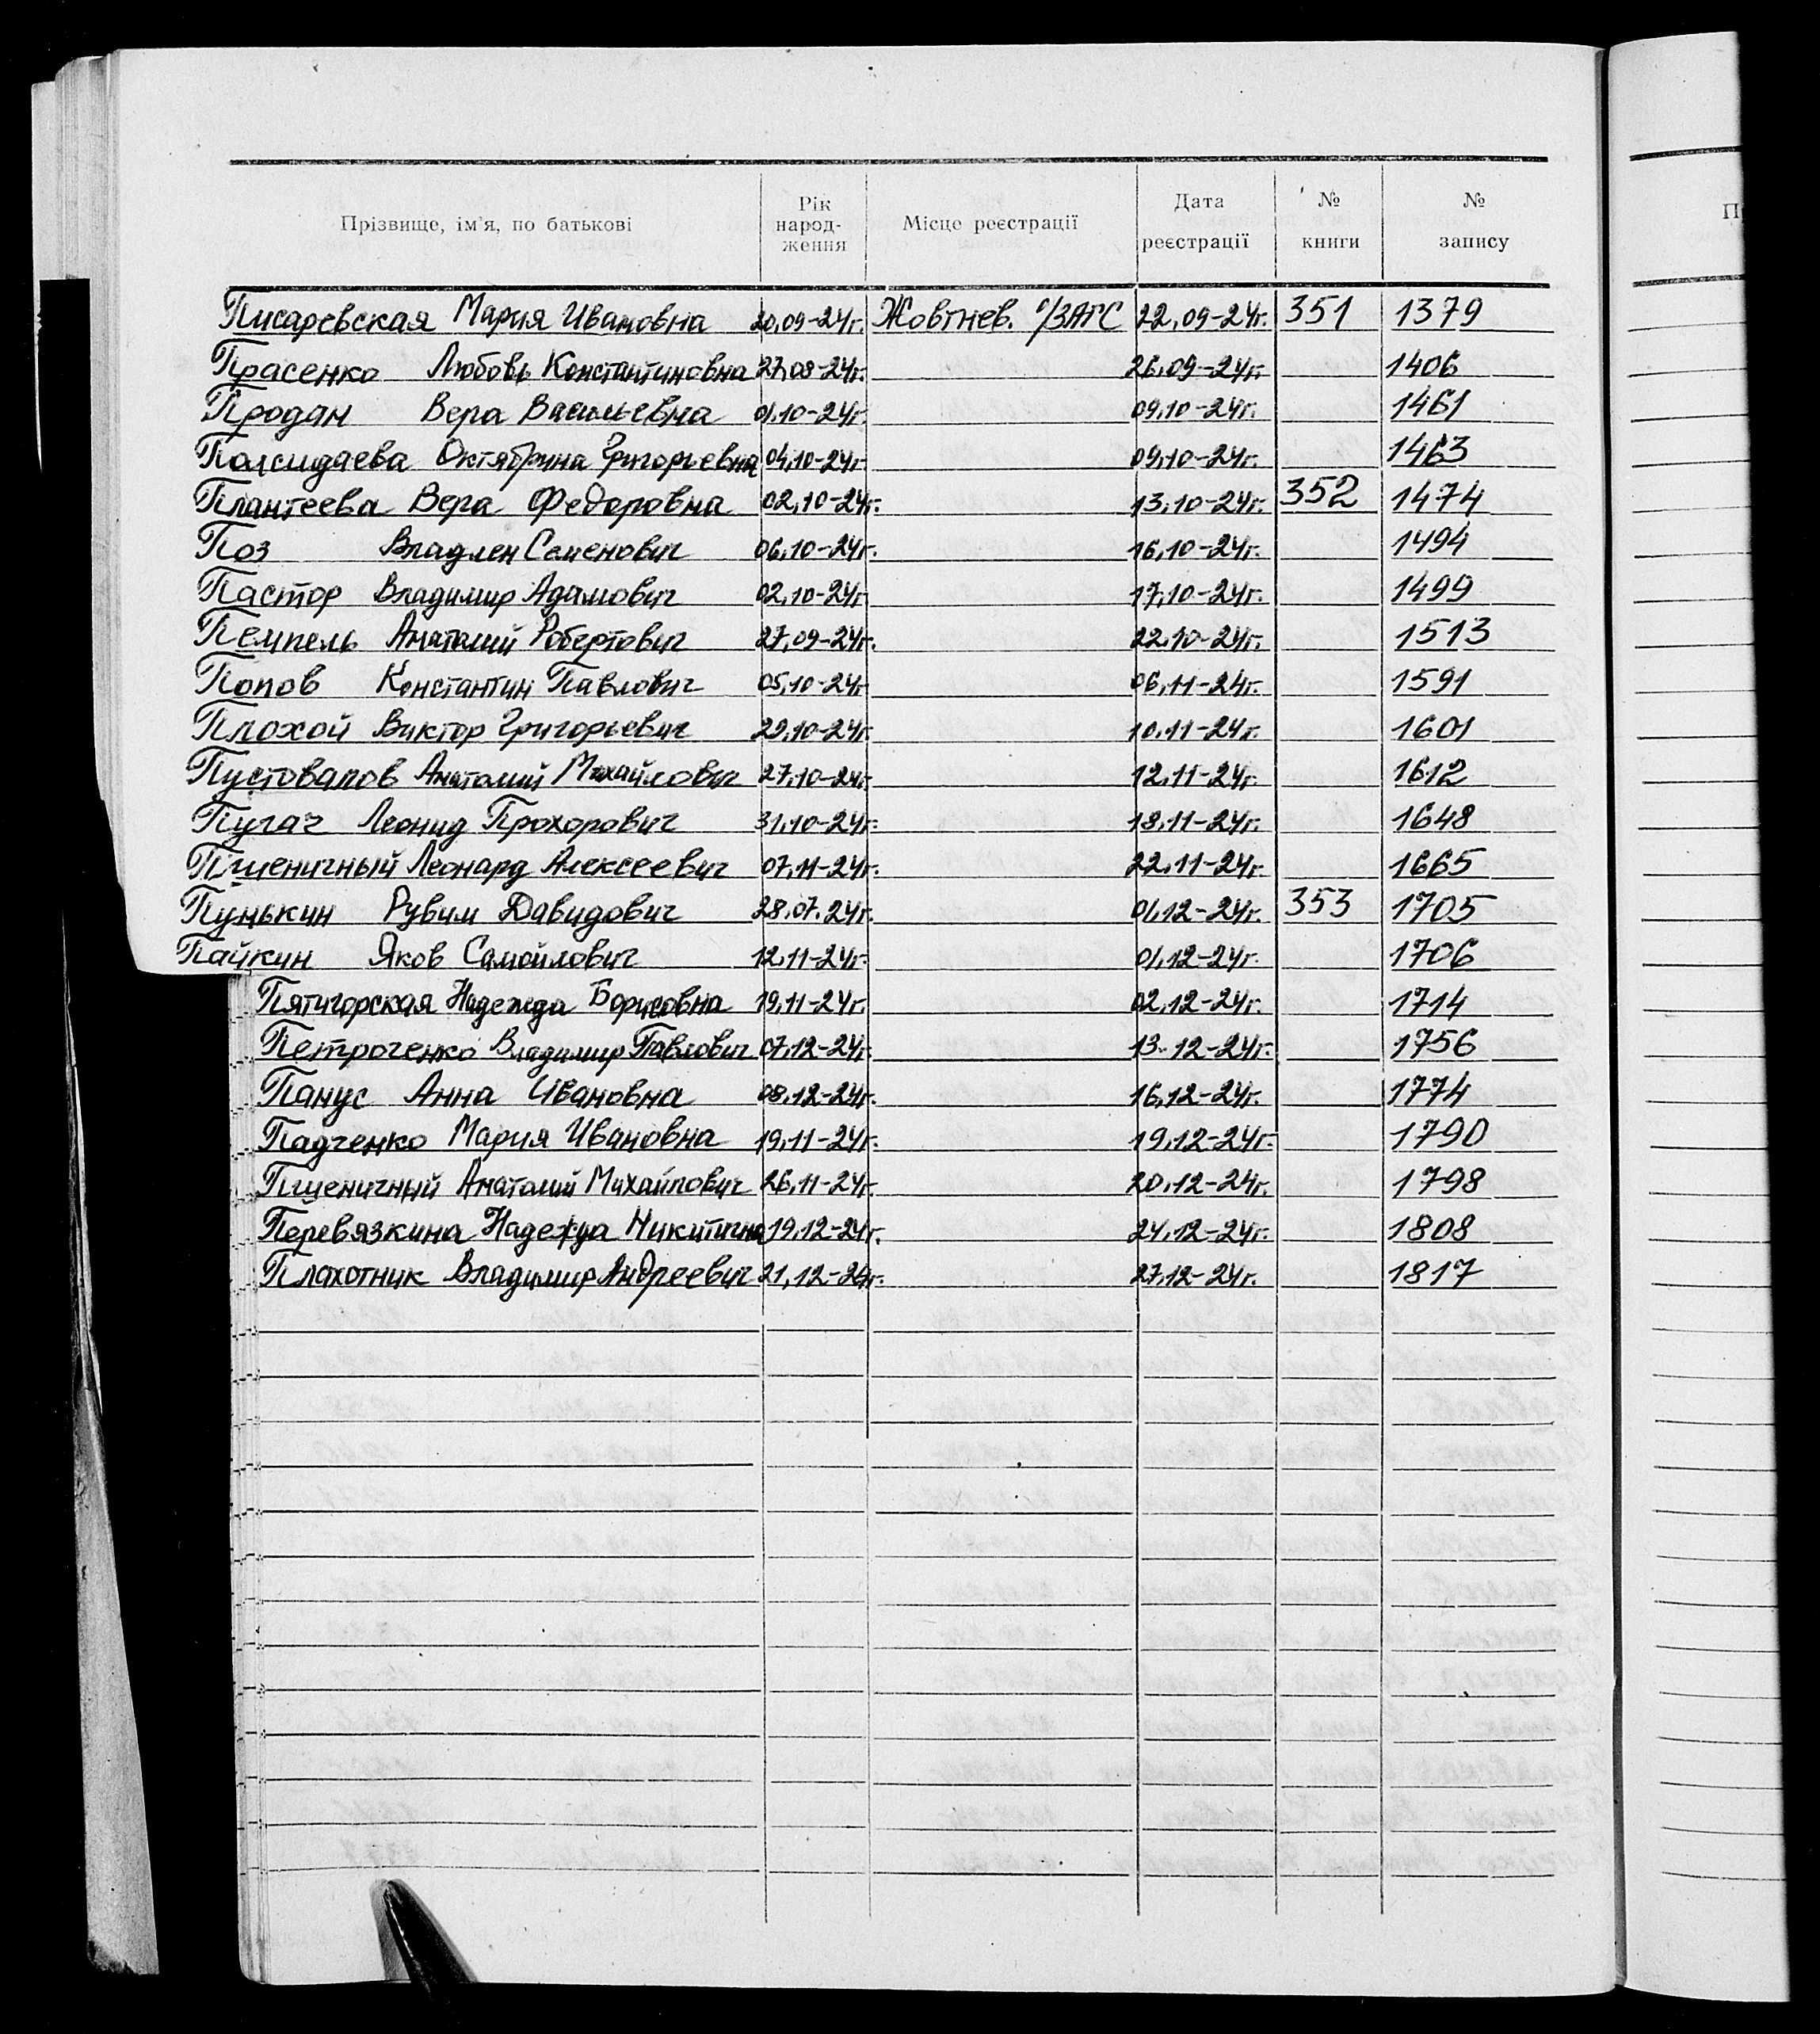 Прізвище, ім'я, по батькові Рік народ- ження Місце реєстрації Дата реєстрації № книги № запису
Писаревская Мария Ивановна 20.09-24г. Жовтнев. о/ЗАГС 22.09-24г. 351 1379
Прасенко Любовь Константиновна 27.08-24г. 26.09-24г. 1406
Продан Вера Васильевна 01.10-24г. 09.10-24г. 1461
Октябрина Григорьевна 04.10-24г. 09.10-24г. 1463
Плантеева Вера Федоровна 02.10-24г. 13.10-24г. 352 1474
Поз Владлен Семенович 06.10-24г. 16.10-24г. 1494
Пастор Владимир Адамович 02.10-24г. 17.10-24г. 1499
Пемпель Анатолий Робертович 27.09-24г. 22.10-24г. 1513
Попов Константин Павлович 05.10-24г. 06.11-24г. 1591
Плохой Виктор Григорьевич 29.10-24г. 10.11-24г. 1601
Пустовалов Анатолий Михайлович 27.10-24г. 12.11-24г. 1612
Пугач Леонид Прохорович 31.10-24г. 18.11-24г. 1648
Пшеничный Леонард Алексеевич 07.11-24г. 22.11-24г. 1665
Пунькин Рувим Давидович 28.07.24г. 01.12-24г. 353 1705
Пайкин Яков Самойлович 12.11-24г. 01.12-24г. 1706
Пятигорская Надежда Борисовна 19.11-24г. 02.12-24г. 1714
Петроченко Владимир Павлович 07.12-24г. 13.12-24г. 1756
Панус Анна Ивановна 08.12-24г. 16.12-24г. 1774
Падченко Мария Ивановна 19.11-24г. 19.12-24г. 1790
Пшеничный Анатолий Михайлович 26.11-24г. 20.12-24г. 1798
Перевязкина Надежда Никитична 19.12-24г. 24.12-24г. 1808
Плахотник Владимир Андреевич 21.12-24г. 27.12-24г. 1817